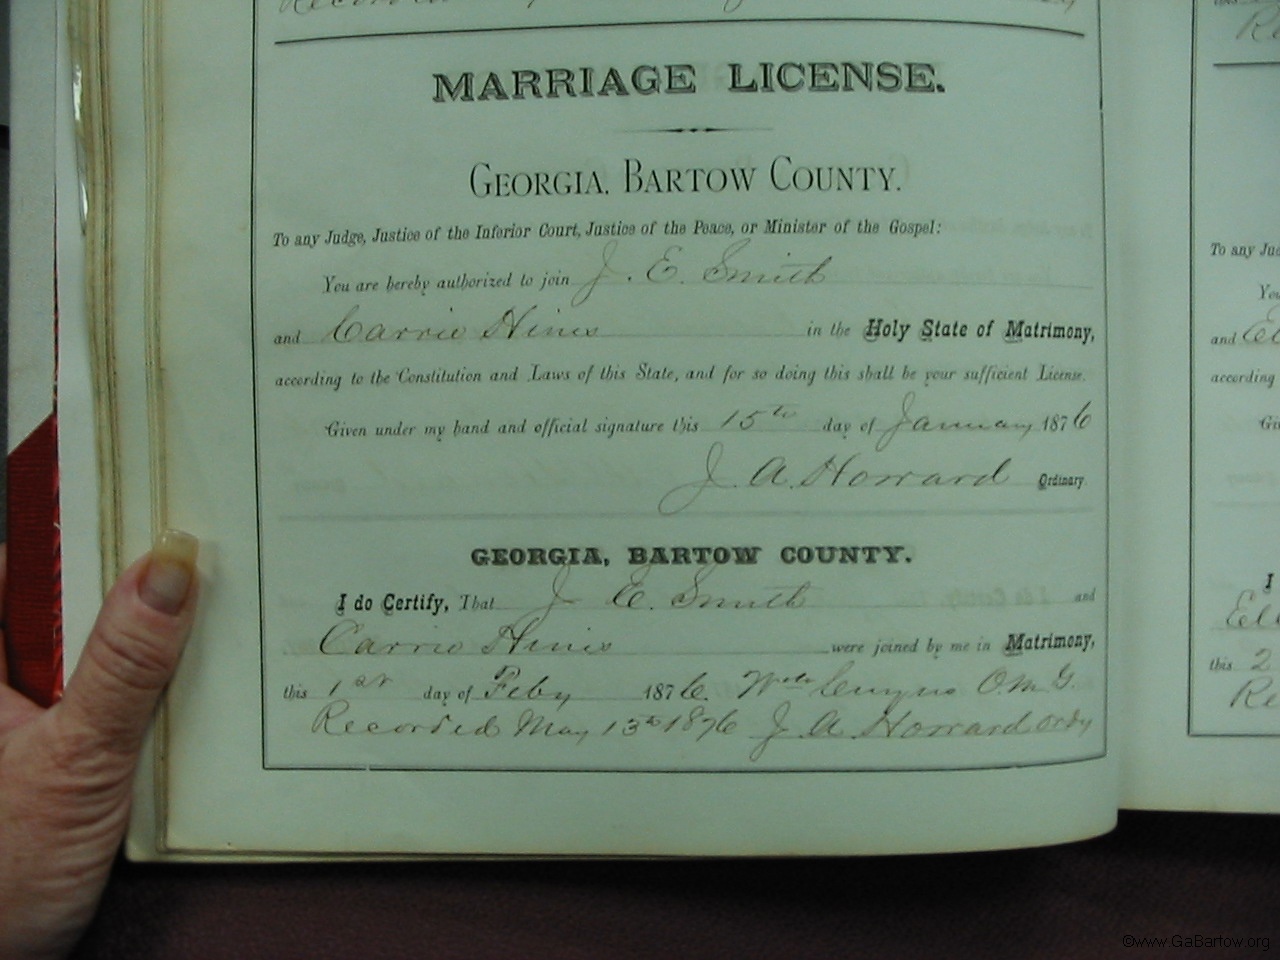 MARRIAGE LICENSE.
GEORGIA. BARTOW COUNTY.
To any Judge, Justice of the Inferior Court, Justice of the Peace, or Minister of the Gospel:
You are hereby authorized to join J. E. Smith
and Carrie Hines in the Holy State of Matrimony,
according to the Constitution and Laws of this State, and for so doing this shall be your sufficient License.
Given under my hand and official signature this 15th day of January 1876
J. A. Howard Ordinary.
GEORGIA, BARTOW COUNTY.
I do Certify, That J E. Smith and
Carrie Hines were joined by me in Matrimony,
this 1st day of Feby 1876. Wm O. M. G.
Recorded May 13th 1876 J. A. Howard Ordy
To any Jud
You
and
according
I
this 2
Re
©www.GaBartow.org